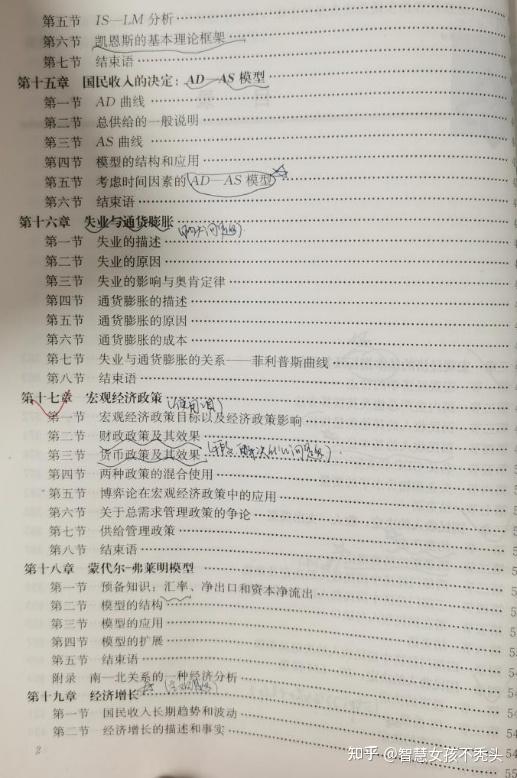 第五节 IS—LM 分析
第六节 凯恩斯的基本理论框架
第七节 结束语
第十五章 国民收入的决定：AD—AS 模型
第一节 AD 曲线
第二节 总供给的一般说明
第三节 AS 曲线
第四节 模型的结构和应用
第五节 考虑时间因素的 AD—AS 模型
第六节 结束语
第十六章 失业与通货膨胀
第一节 失业的描述
第二节 失业的原因
第三节 失业的影响与奥肯定律
第四节 通货膨胀的描述
第五节 通货膨胀的原因
第六节 通货膨胀的成本
第七节 失业与通货膨胀的关系——菲利普斯曲线
第八节 结束语
第十七章 宏观经济政策
第一节 宏观经济政策目标以及经济政策影响
第二节 财政政策及其效果
第三节 货币政策及其效果
第四节 两种政策的混合使用
第五节 博弈论在宏观经济政策中的应用
第六节 关于总需求管理政策的争论
第七节 供给管理政策
第八节 结束语
第十八章 蒙代尔-弗莱明模型
第一节 预备知识：汇率、净出口和资本净流出
第二节 模型的结构
第三节 模型的应用
第四节 模型的扩展
第五节 结束语
附录 南—北关系的一种经济分析
第十九章 经济增长
第一节 国民收入长期趋势和波动
第二节 经济增长的描述和事实
2
知乎 @智慧女孩不秃头